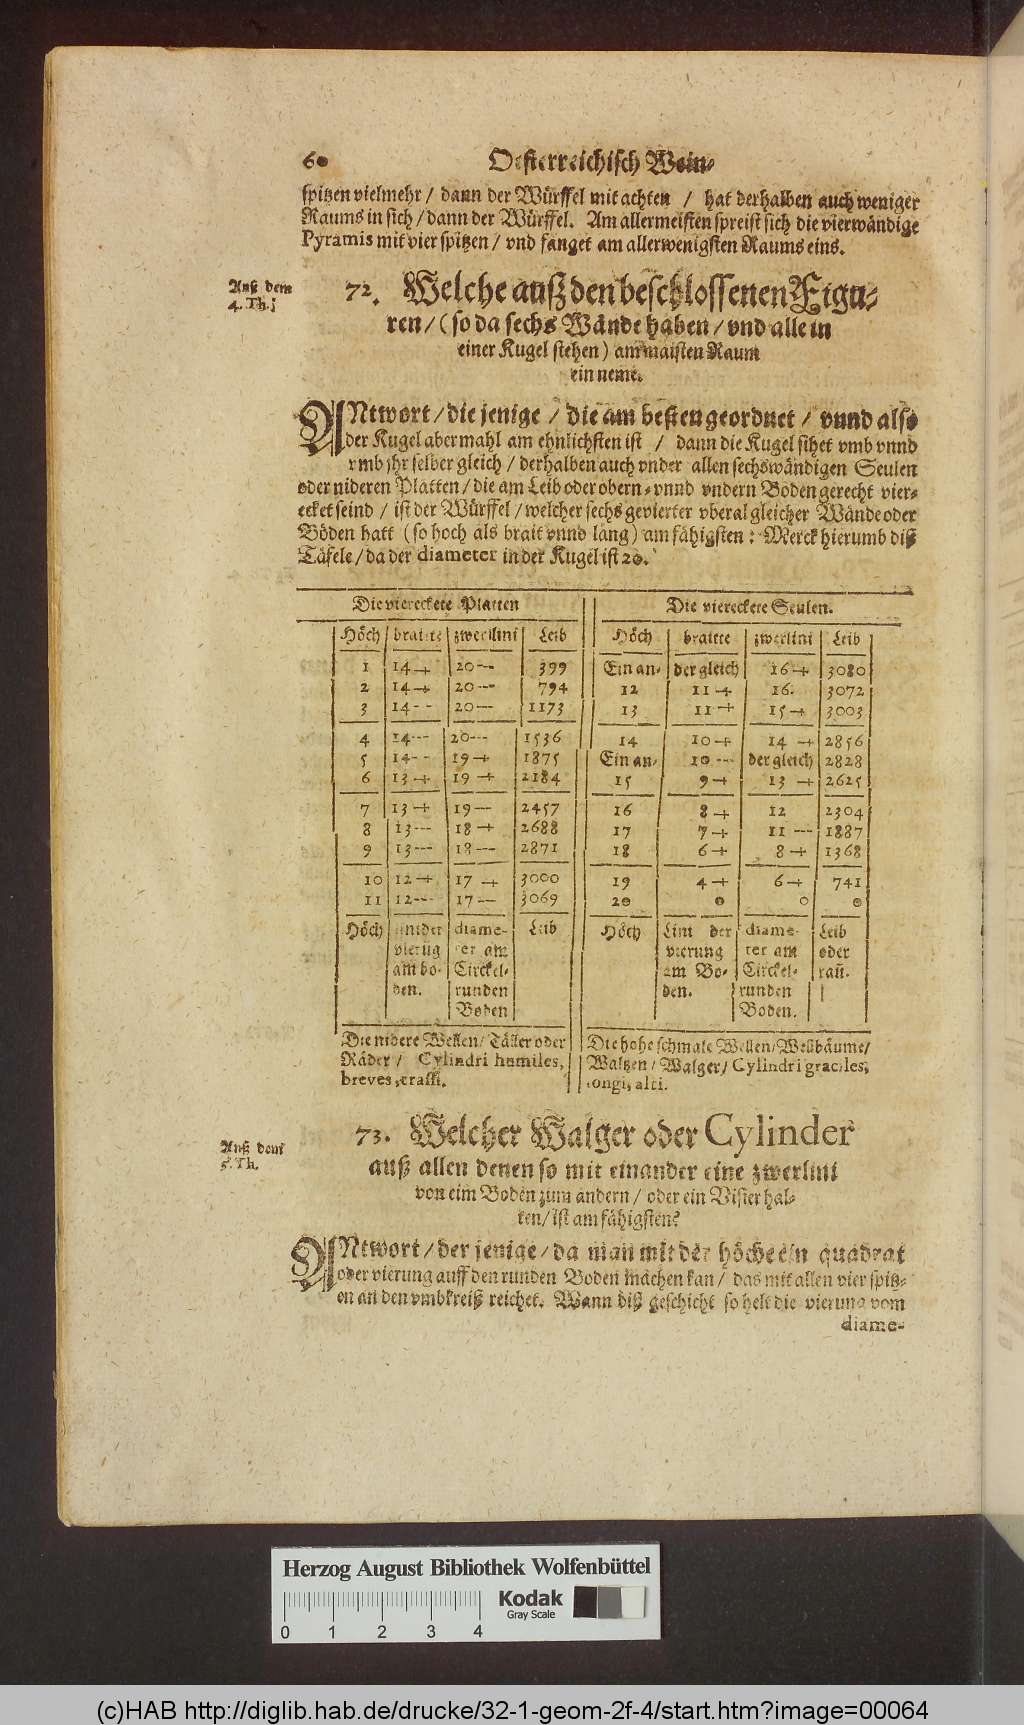 60 Oesterreichisch Wein-
spitzen vielmehr / dann der Würffel mit achten / hat derhalben auch weniger
Raums in sich / dann der Würffel. Am allermeisten spreist sich die vierwändige
Pyramis mit vier spitzen / vnd fänget am allerwenigsten Raums eins.
Auß dem
4. Th.
72. Welche auß den beschlossenen Figu-
ren / (so da sechs Wände haben / vnd alle in
einer Kugel stehen) am maisten Raum
ein neme.
ANtwort / die jenige / die am besten geordnet / vnnd also
der Kugel abermahl am ehnlichsten ist / dann die Kugel sihet vmb vnnd
vmb jhr selber gleich / derhalben auch vnder allen sechswändigen Seulen
oder nideren Platten / die am Leib oder obern- vnnd vndern Boden gerecht vier-
ecket seind / ist der Würffel / welcher sechs gevierter vberal gleicher Wände oder
Böden hatt (so hoch als brait vnnd lang) am fähigsten: Merck hierumb diß
Täfele / da der diameter in der Kugel ist 20.
Die viereckete Platten Die viereckete Seulen.
Höch braitte zwerlini Leib Höch braitte zwerlini Leib
1 14 + 20 -- 399 Ein an- der gleich 16 + 3080
2 14 + 20 --- 794 12 11 + 16. 3072
3 14 -- 20 --- 1173 13 11 + 15 + 3003
4 14 --- 20 --- 1536 14 10 + 14 + 2856
5 14 -- 19 + 1875 Ein an- 10 --- der gleich 2828
6 13 + 19 + 2184 15 9 + 13 + 2625
7 13 + 19 -- 2457 16 8 + 12 2304
8 13 --- 18 + 2688 17 7 + 11 --- 1887
9 13 --- 18 --- 2871 18 6 + 8 + 1368
10 12 + 17 + 3000 19 4 + 6 + 741
11 12 --- 17 -- 3069 20 0 0 0
Höch diame- Leib Höch Lini der diame- Leib
vierug ter am vierung ter am oder
am bo- Circkel- am Bo- Circkel- raū.
den. runden den. runden
Boden Boden.
Die nidere Wellen / Täller oder Die hohe schmale Wellen / Wellbäume /
Räder / Cylindri humiles, Waltzen / Walger / Cylindri graciles,
breves, crassi. longi, alti.
Auß dem
5. Th.
73. Welcher Walger oder Cylinder
auß allen denen so mit einander eine zwerlini
von eim Boden zum andern / oder ein Visier hal-
ten / ist am fähigsten?
ANtwort / der jenige / da man mit der höche ein quadrat
oder vierung auff den runden Boden machen kan / das mit allen vier spitz-
en an den vmbkreiß reichet. Wann diß geschicht so helt die vierung vom
diame-
Herzog August Bibliothek Wolfenbüttel
0 1 2 3 4
Kodak
Gray Scale
(c)HAB http://diglib.hab.de/drucke/32-1-geom-2f-4/start.htm?image=00064